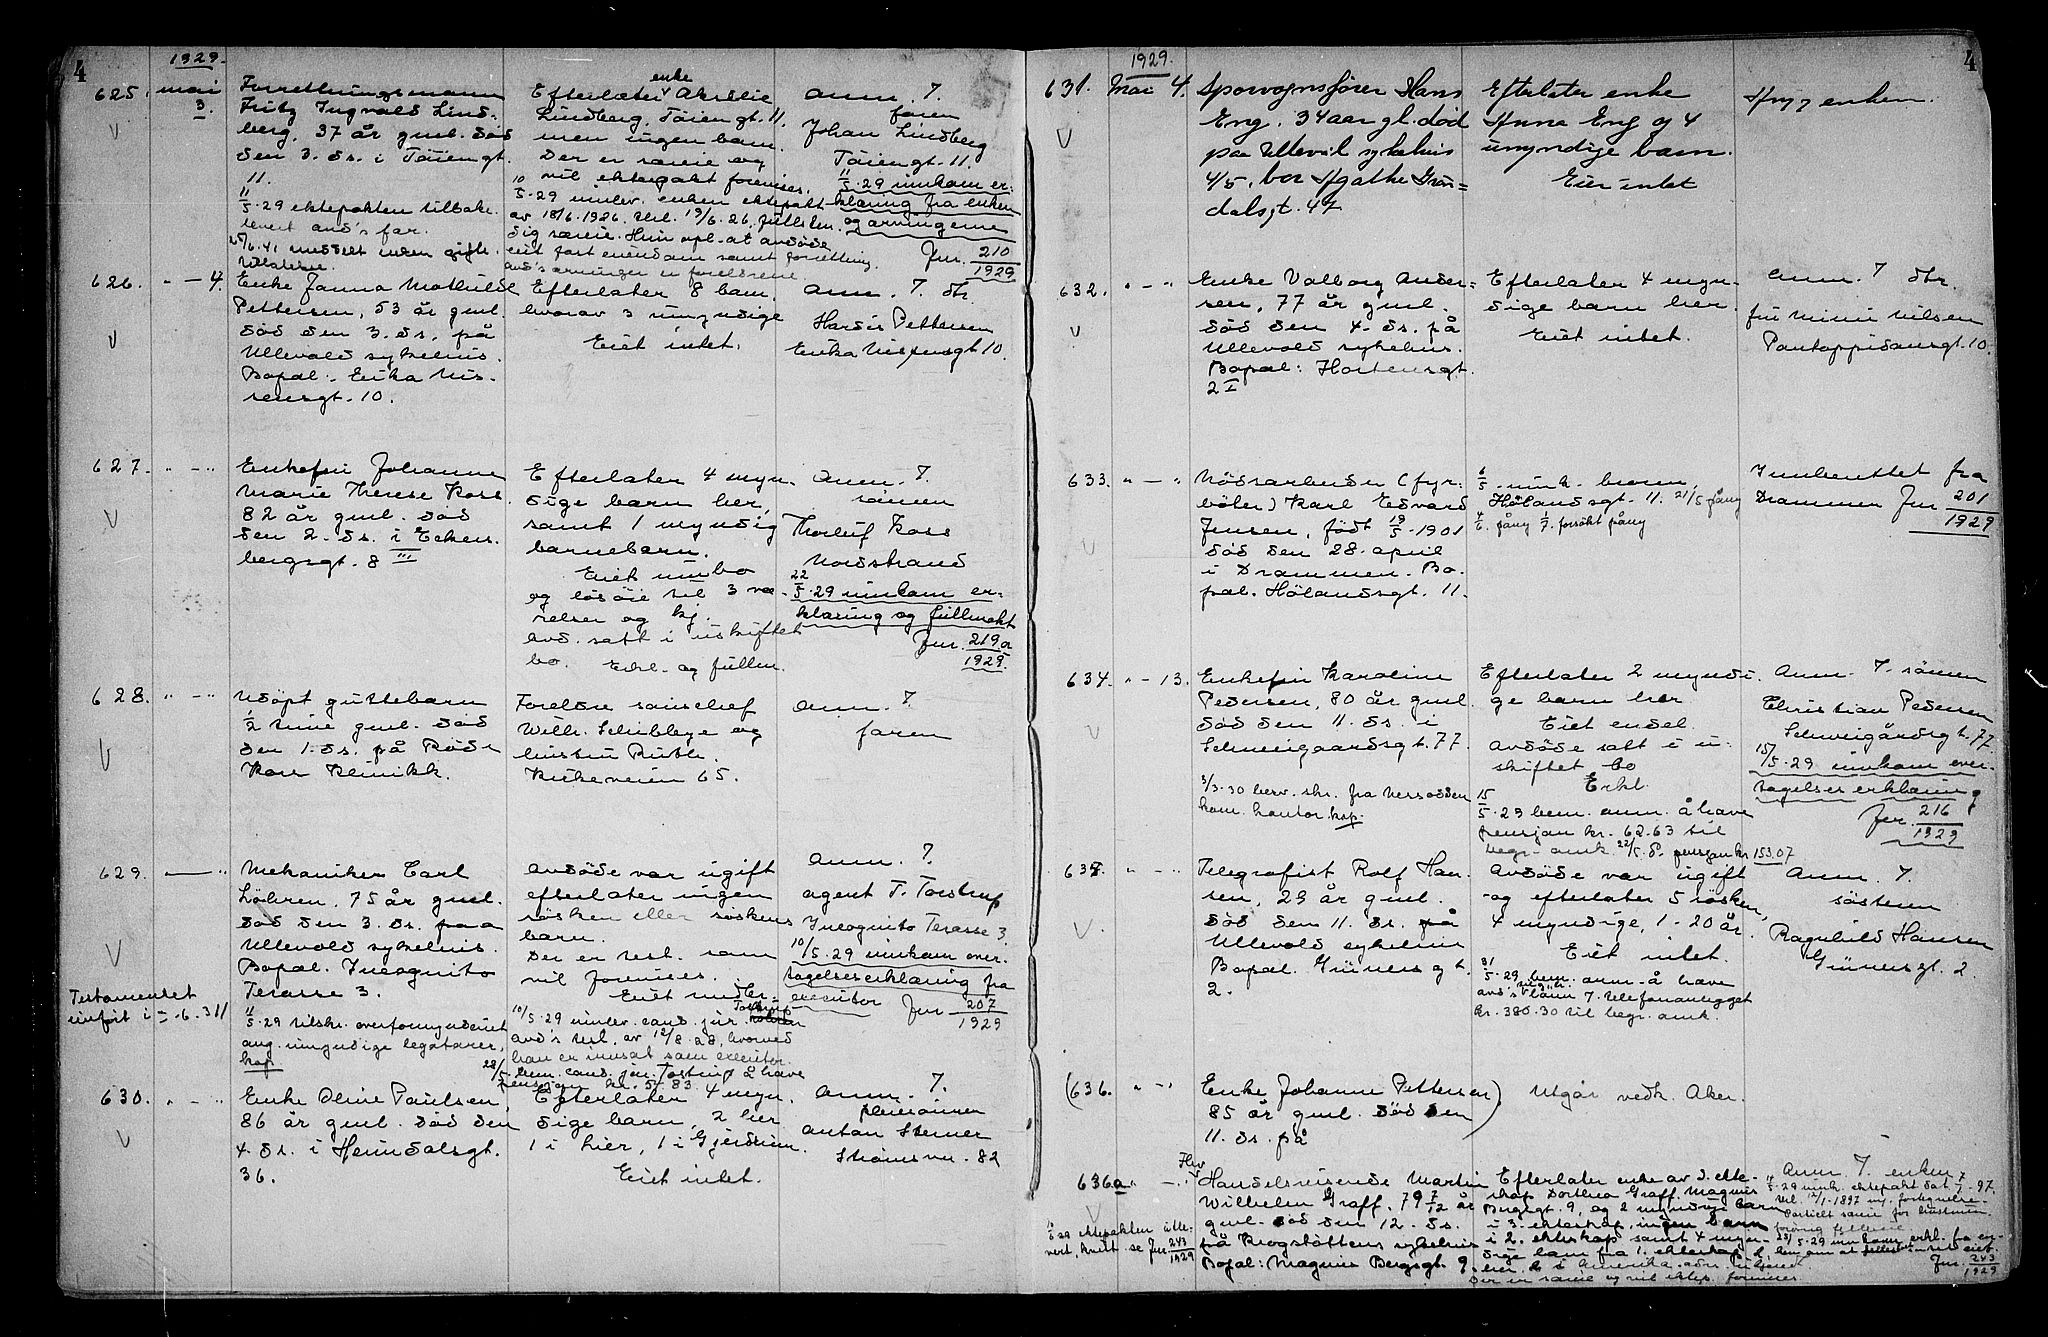 4
1929.
625. mai 3.
Forretningsmann
Fritz Ingvald Lind-
berg, 37 år gml. død
den 3. ds. i Tøiengt.
11.
11/5.29 ektepakten tilbake-
levert avd's far.
Efterlater enke
Lindberg, Tøiengt. 11,
men ingen barn.
Der er særeie og
vil ektepakt forevises.
10/5.29 innlev. enken ektepakt
av 18/6.1926, tinl. 19/6.26, fullsten-
dig særeie. Hun opl. at avdøde
eiet fast eiendom samt forretning.
avd's arvinger er foreldrene.
anm. 7.
faren
Johan Lindberg
Tøiengt. 11.
11/5.29 innkom er-
klæring fra enken
og arvingerne
Jnr. 210/1929
626. " — 4.
Enke Janna Mathilde
Pettersen, 53 år gml.
død den 3. ds. på
Ullevold sykehus.
Bopæl: Erika Nis-
sensgt. 10.
Efterlater 8 barn,
hvorav 3 umyndige
Eiet intet.
anm. 7. dtr.
Hardis Pettersen
Erika Nissensgt 10.
627. " — "
Enkefru Johanne
Marie Therese Koss
82 år gml. død
den 2. ds. i Eckers-
bergsgt. 8 III
Efterlater 4 myn-
dige barn her,
samt 1 myndig
barnebarn.
Eiet innbo
og løsøie til 3 væ-
relser og kj.
Avd. satt i uskiftet
bo. Erkl. og fullm.
Anm. 7.
sønnen
Thorluf Koss
Nordstrand
22/5.29 innkom er-
klæring og fullmakt
Jnr. 219a/1929.
628. " — "
Udøpt guttebarn
1/2 time gml. død
den 1. ds. på Røde
Kors Klinikk.
Foreldre
Willi. Schibbye og
hustru Ruth.
Kirkeveien 65.
Anm. 7.
faren
629. — "
Mekaniker Carl
Løhren, 75 år gml.
død den 3. ds. paa
Ullevold sykehus.
Bopæl. Incognito
Terasse 3.
11/5.29 tilskr. overformynderiet
ang. umyndige legatarer,
kop.
Testamentet
innført i
Avdøde var ugift
efterlater ingen
søsken eller søskens
barn.
Der er test. som
vil forevises.
10/5.29 innlev. cand. jur. Torstrup
avd's test. av 12/8.28, hvorved
han er innsat som executor.
28/5 bem. cand. jur. Torstrup å have
Anm. 7.
agent T. Torstrup
Incognito Terasse 3.
10/5.29 innkom over-
tagelseserklæring fra
executor Jnr 207/1929
630. " — "
Enke Oline Paulsen,
86 år gml. død den
4. ds. i Heimdalsgt.
36.
Efterlater 4 myn-
dige barn, 2 her
1 i Gjerdrum.
Eiet intet.
Anm. 7.
Anton Sterner
Strømsvn. 82
4
1929.
631. Mai 4.
Sporvognsfører Hans
Eng, 34 aar gl. død
paa Ullevål sykehus
4/5, bor Agathe Grøn-
dalsgt. 47
Efterlater enke
Anna Eng og 4
umyndige barn.
Eier intet
Anm. 7 enken.
632. " — "
Enke Valborg Ander-
sen, 77 år gml.
død den 4. ds. på
Ullevold sykehus.
Bopæl: Hortensgt.
2 I
Efterlater 4 myn-
dige barn her
Eiet intet.
Anm. 7 dtr.
fru Mimi Nilsen
Pontoppidansgt. 10.
633. " — "
Nødsarbeider (fyr-
bøter) Karl Edvard
Jensen, født 19/5.1901
død den 28. april
i Drammen. Bo-
pæl. Hølandsgt. 11.
6/5. innk. broren,
Hølandsgt. 11. 21/5 påny
4/6. påny 7/7. forsøkt påny
Innberettet fra
Drammen Jnr 201/1929
634. " — 13.
Enkefru Karoline
Pedersen, 80 år gml.
død den 11. ds. i
Schweigaardsgt. 77.
3/3.30 berv. skr. fra Nesodden
kom. kontor. kop.
Efterlater 2 myndi-
ge barn her
Eiet endel
Avdøde satt i u-
skiftet bo
Erkl.
15/5.29 bem. anm. å have
pensjon kr. 62.63 til
begr. omk. 22/5. d. pensjon kr 153.07
Anm. 7. sønnen
Christian Pedersen
Schweigårdsgt. 77.
15/5.29 innkom over-
tagelseserklæring
Jnr. 216/1929
635. " — "
Telegrafist Rolf Han-
sen, 29 år gml.
død den 11. ds. på
Ullevold sykehus
Bopæl. Grünersgt.
2.
Avdøde var ugift
og efterlater 5 søsken,
4 myndige, 1 - 20 år.
Eiet intet.
31/5.29 bem. anm. å have
avd's lønn 7. telefonanlegget
kr. 380.30 til begr. omk.
Anm. 7.
søsteren
Ragnhild Hansen
Grünersgt. 2.
(636. " — "
Enke Johanne Pettersen)
85 år gml. død den
11. ds. på
Utgår vedk. Aker.
636a " — "
Handelsreisende Martin
Wilhelm Graff. 79 7/12 år
gml. død den 12. ds.
på Krogstøttens sykehus
Bopæl: Magnus Bergsgt 9.
Efterlater enke av 3. ekte-
skap Dorthea Graff. Magnus
Bergsgt. 9, og 2 myndige barn
i 3. ekteskap, ingen barn
i 2. ekteskap samt 4 myn-
dige barn fra 1. ekteskap
Der er særeie og vil ektep. forevises
Anm 7. enken
Jnr. 243/1929
ektepakten utle-
vert, kvitt. se Jnr 243/1929